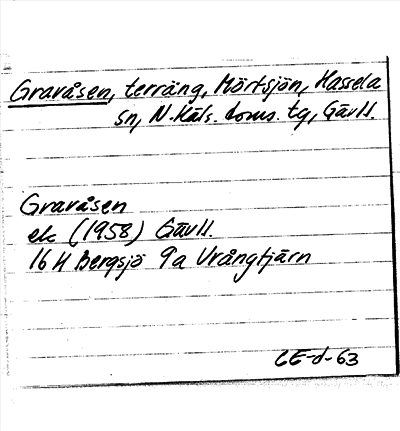 Gravåsen, terräng, Mörtsjön, Hassela
sn, N.Häls. doms. tg, Gävll.
Gravåsen
ek (1958) Gävll.
16 H Bergsjö 9a Vrångtjärn
CE-d-63